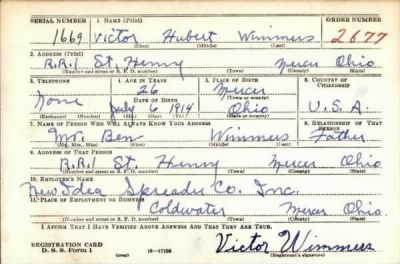 SERIAL NUMBER 1. NAME (Print) ORDER NUMBER
1669 Victor Hubert Wimmers 2677
(First) (Middle) (Last)
2. ADDRESS (Print)
R.R.1 St. Henry Mercer Ohio
(Number and street or R. F. D. number) (Town) (County) (State)
3. TELEPHONE 4. AGE IN YEARS 5. PLACE OF BIRTH 6. COUNTRY OF CITIZENSHIP
26 Mercer
DATE OF BIRTH (Town or county)
None July 6 1914 Ohio U.S.A.
(Exchange) (Number) (Mo.) (Day) (Yr.) (State or country)
7. NAME OF PERSON WHO WILL ALWAYS KNOW YOUR ADDRESS 8. RELATIONSHIP OF THAT PERSON
Mr. Ben Wimmers Father
(Mr., Mrs., Miss) (First) (Middle) (Last)
9. ADDRESS OF THAT PERSON
R.R.1 St. Henry Mercer Ohio
(Number and street or R. F. D. number) (Town) (County) (State)
10. EMPLOYER'S NAME
New Idea Spreader Co. Inc.
11. PLACE OF EMPLOYMENT OR BUSINESS
Coldwater Mercer Ohio
(Number and street or R. F. D. number) (Town) (County) (State)
I AFFIRM THAT I HAVE VERIFIED ABOVE ANSWERS AND THAT THEY ARE TRUE.
REGISTRATION CARD
D. S. S. Form 1 (over) 16—17105 Victor Wimmers
(Registrant's signature)